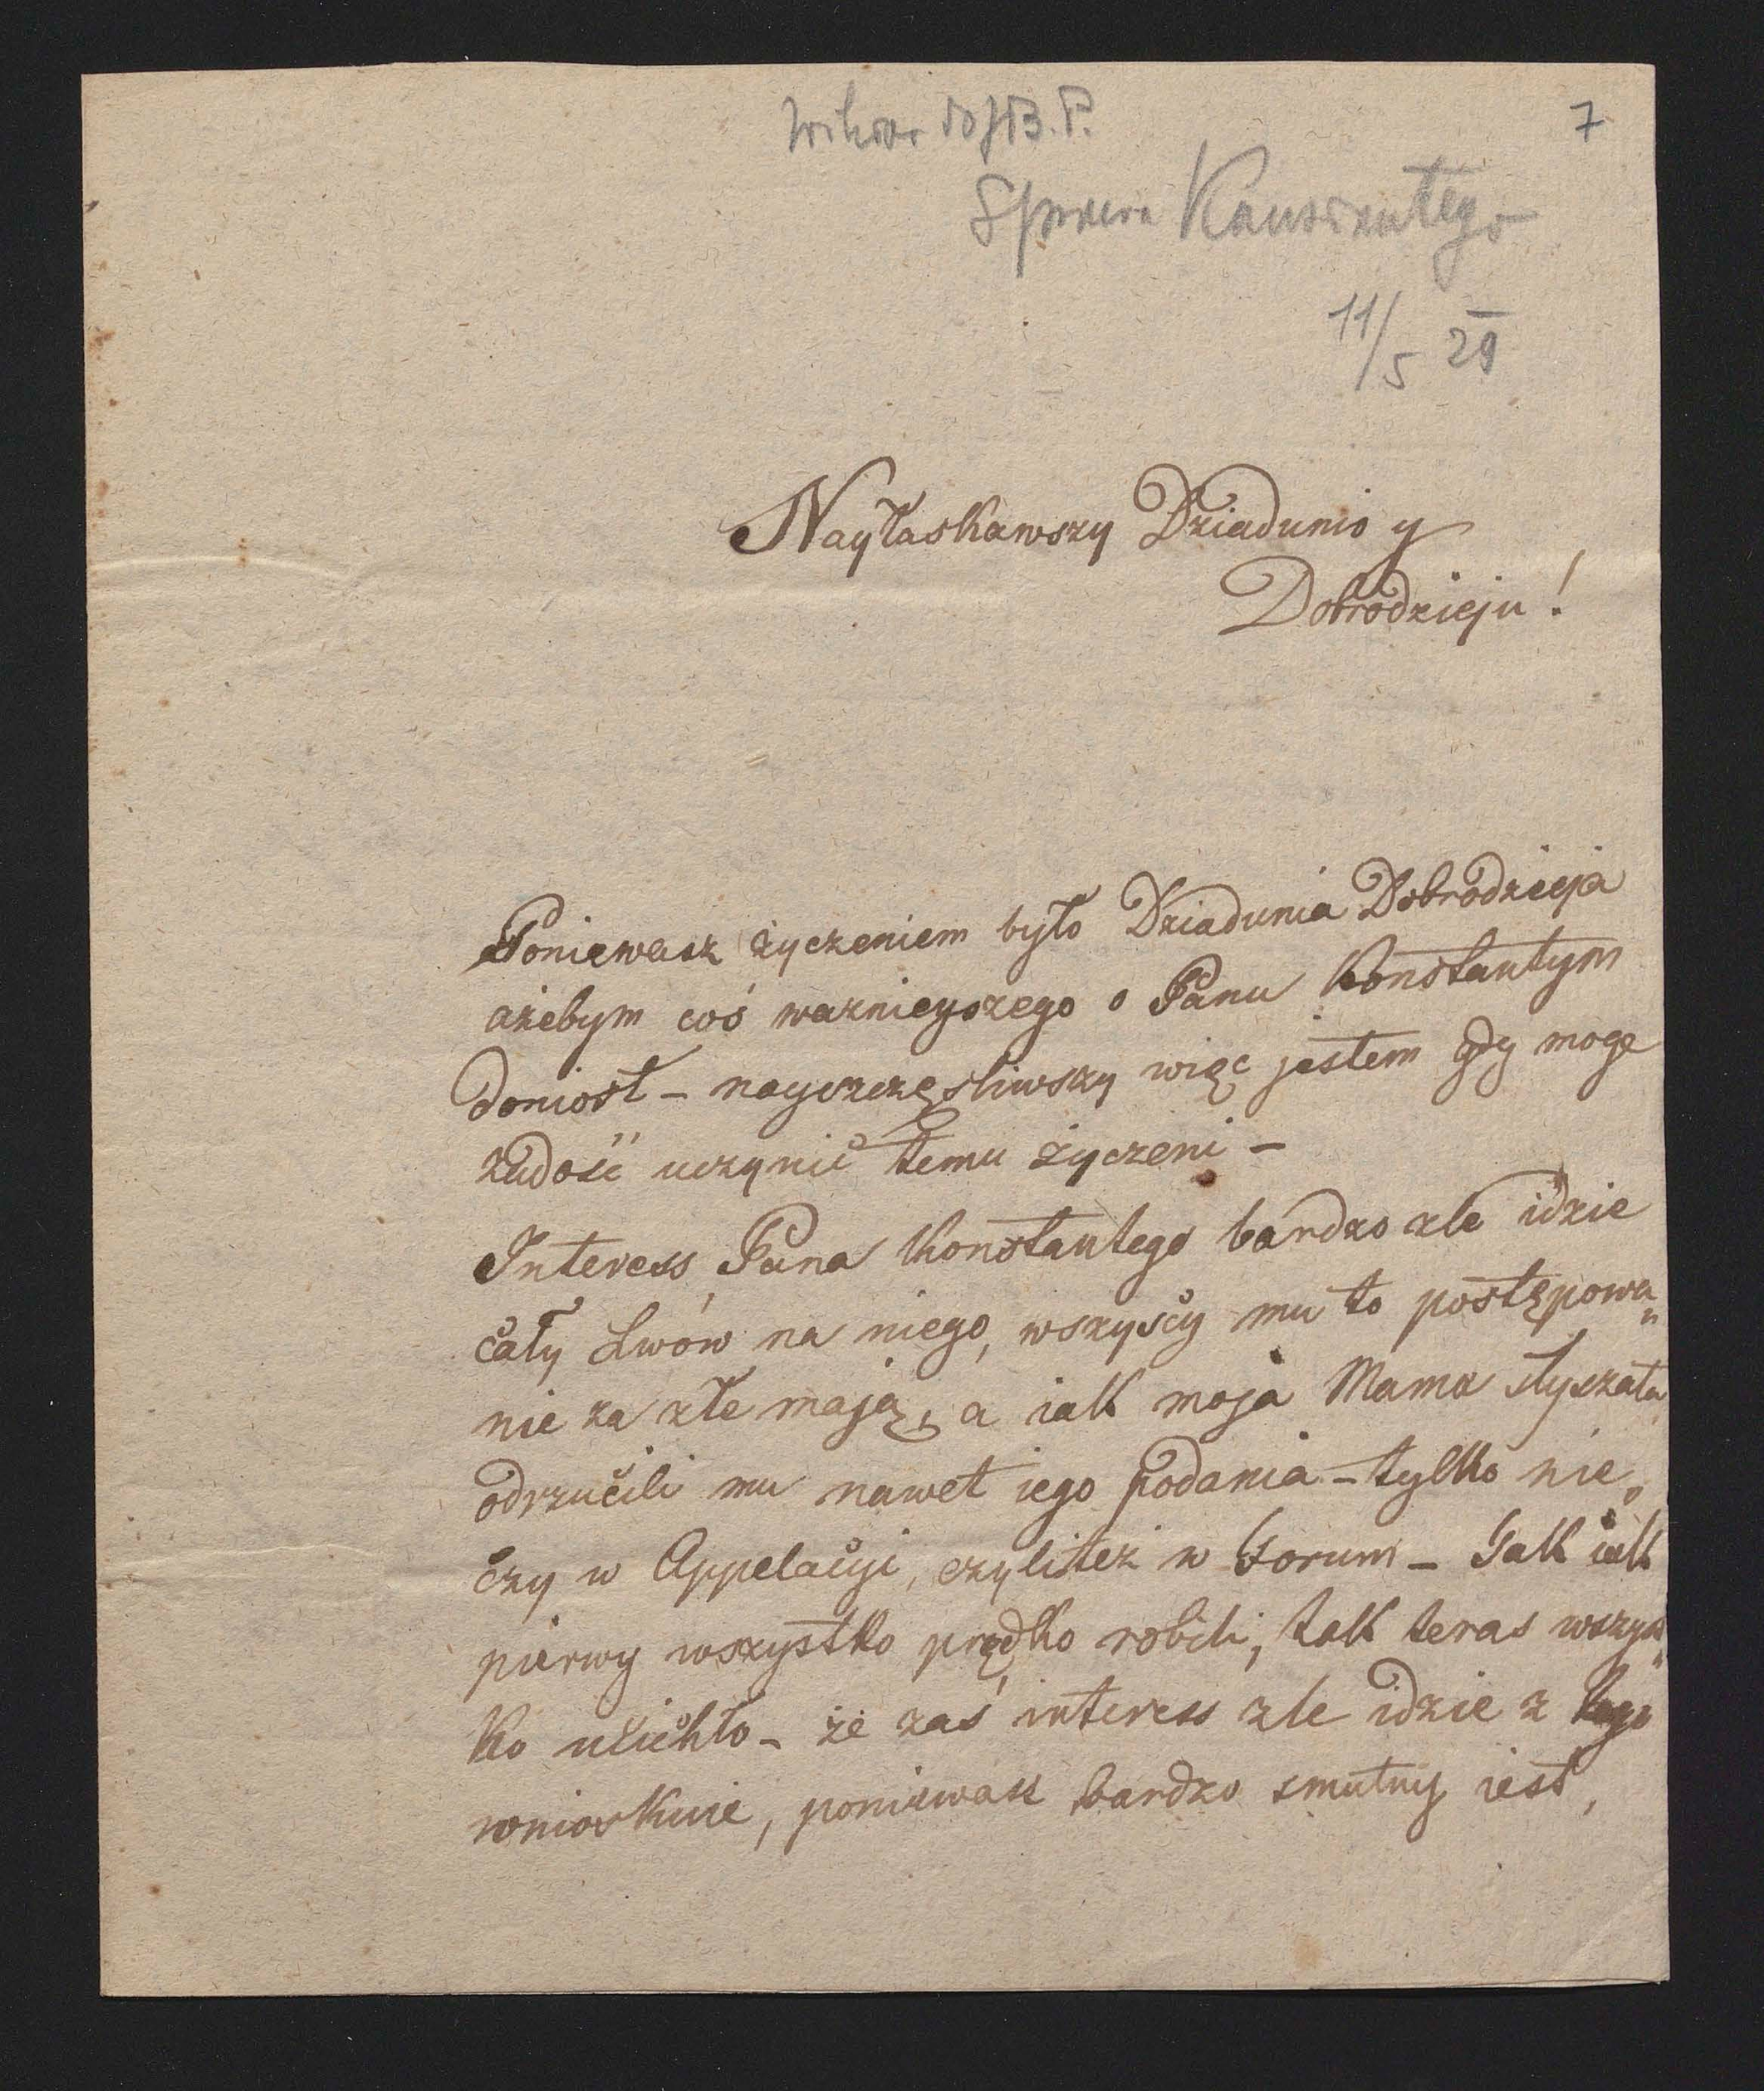 7
Sprawa Konstantego
11/5 29
Nayłaskawszy Dziadunio y
Dobrodzieju!
Poniewasz życzeniem było Dziadunia Dobrodzieja
ażebym coś waznieyszego o Panu Konstantym
doniosł – nayszczęsliwszy więc jestem gdy mogę
zadość uczynić temu życzeni –
Interess Pana Konstantego bardzo zle idzie
cały Lwów na niego, wszyscy mu to postępowa„
nie za złe mają, a iak moja Mama słyszała
odrzucili mu nawet iego podania – tylko nie„
czy w Appelacyi, czyliteż w Forum – Jak iak
pierwy wszystko prędko robili, tak teras wszys„
ko ucichło – że zas interess zle idzie z tego
wnioskuie, poniewasz bardzo smutny iest,